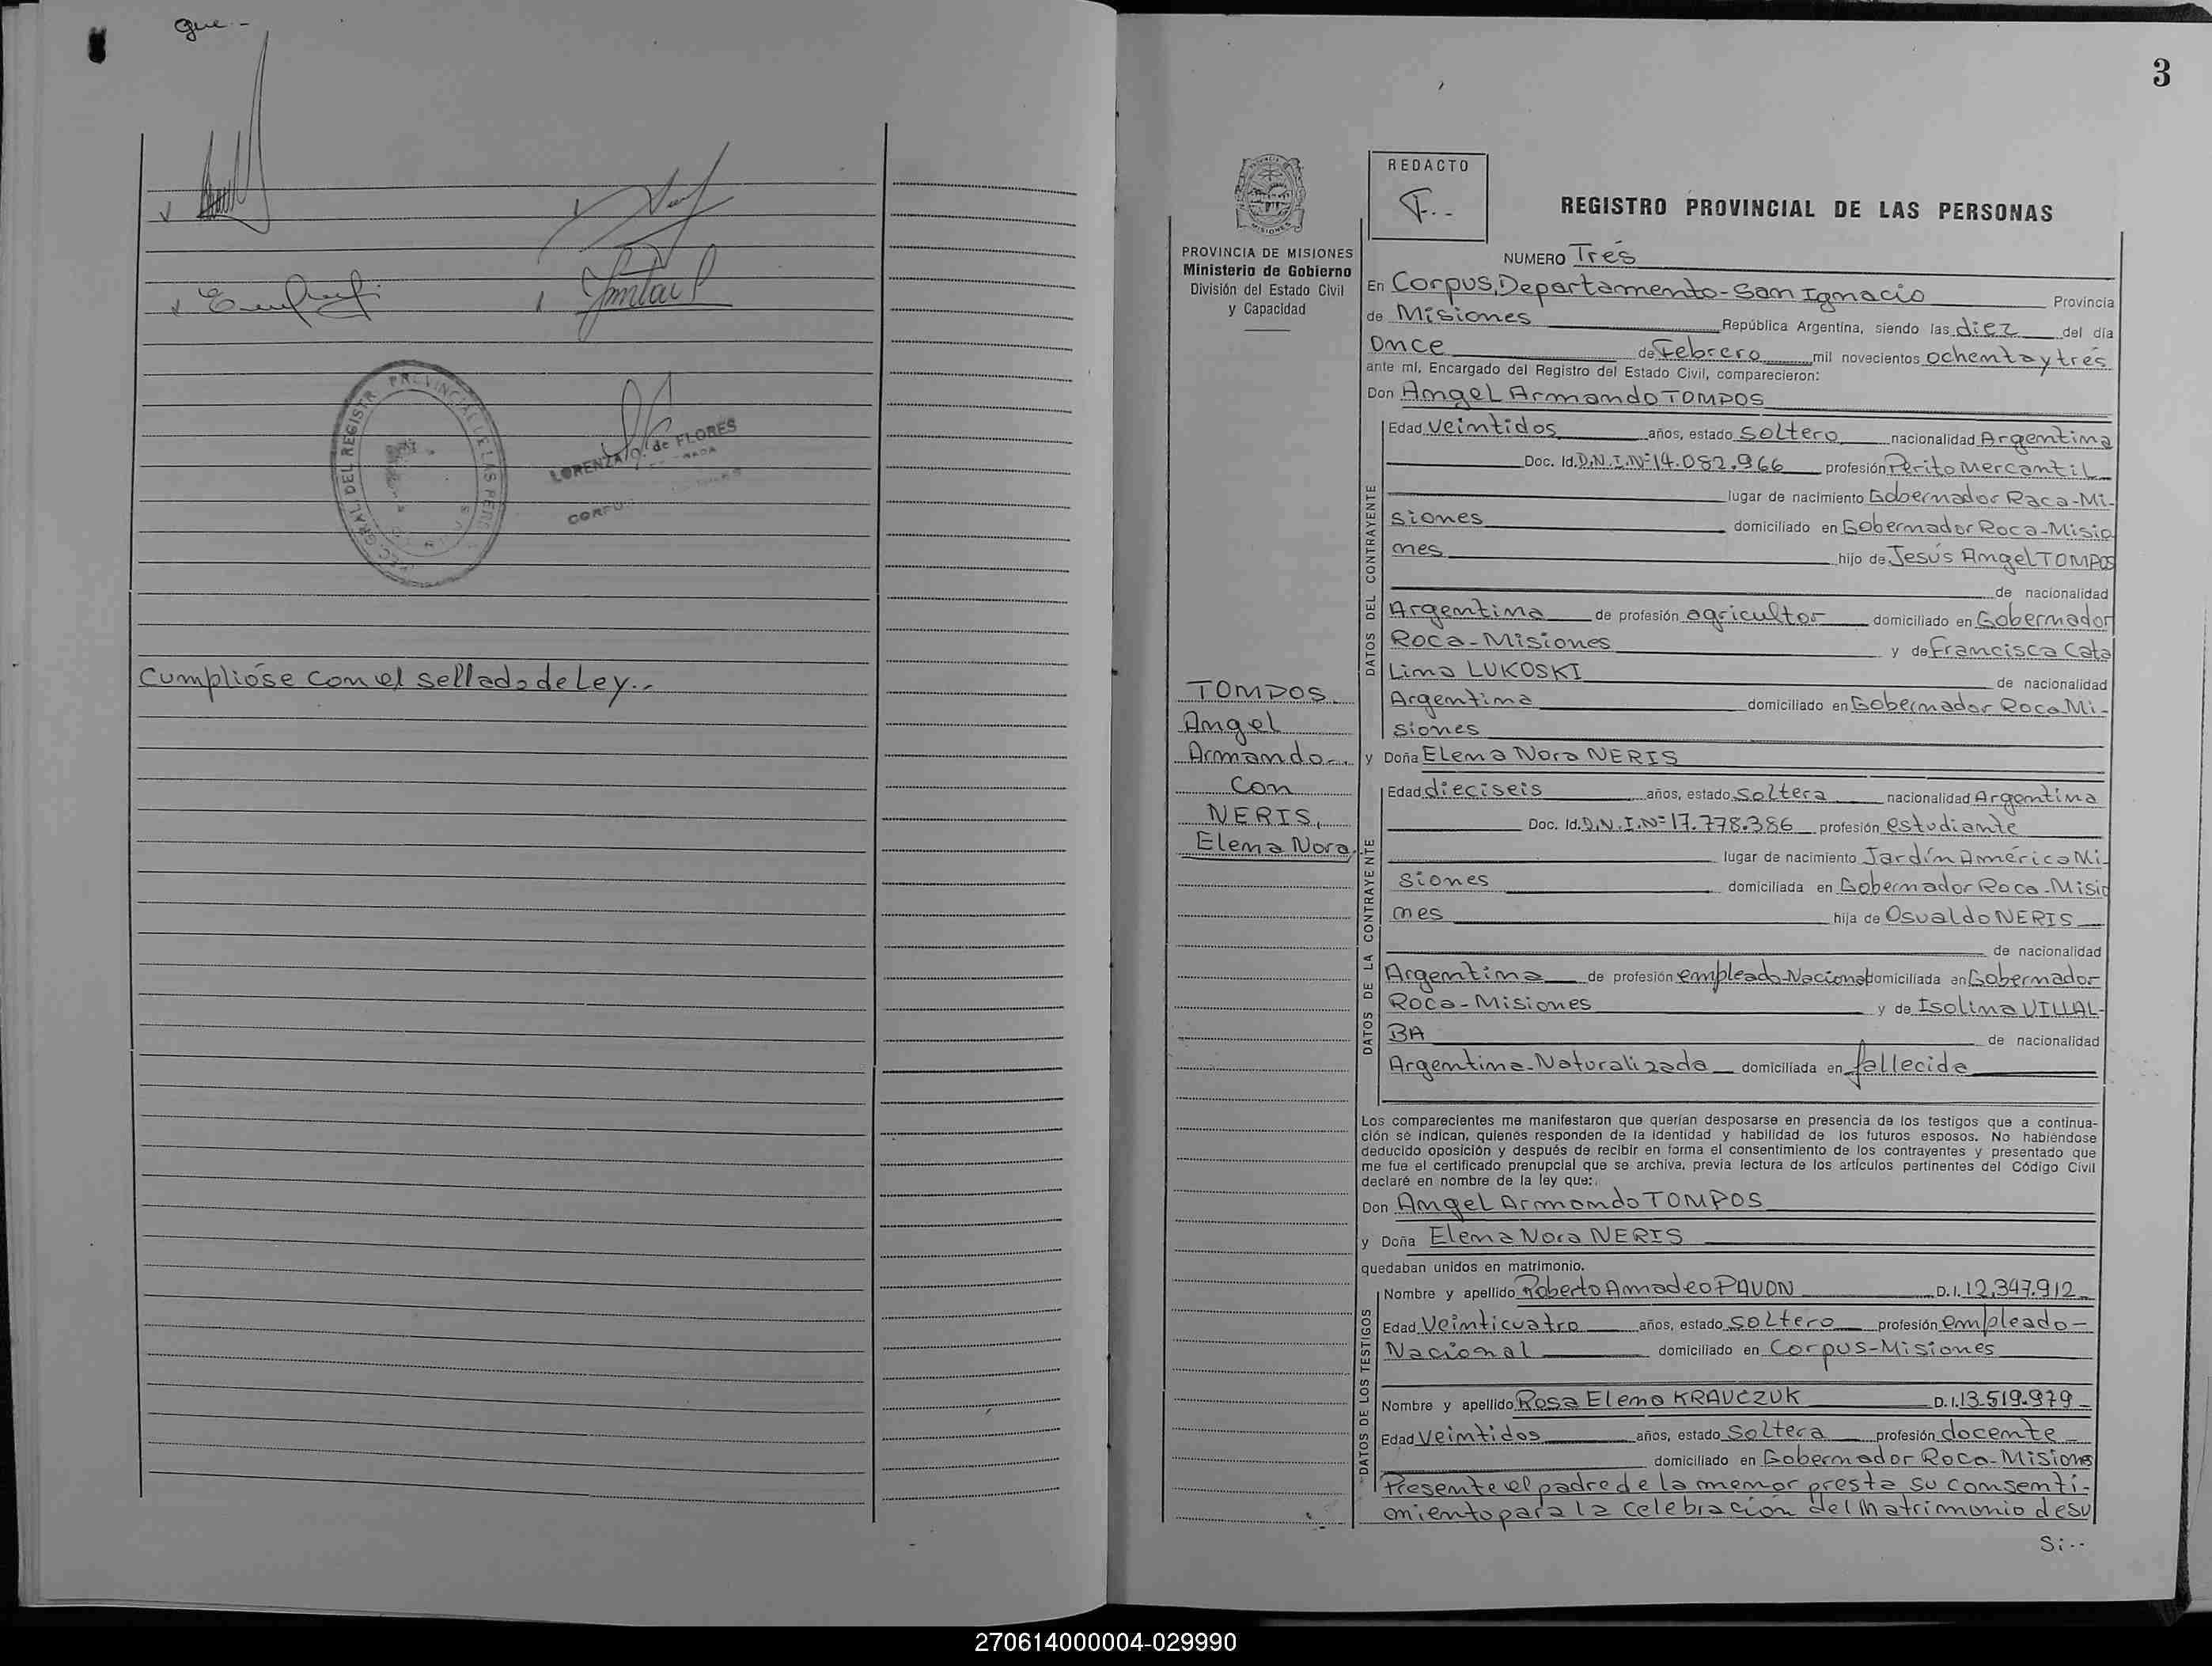 que.-
LORENZA Q. de FLORES
Cumplióse con el sellado de Ley.-
3
REDACTO
F..-
REGISTRO PROVINCIAL DE LAS PERSONAS
PROVINCIA DE MISIONES
Ministerio de Gobierno
División del Estado Civil
y Capacidad
NUMERO Tres
En Corpus, Departamento-San Ignacio Provincia
de Misiones República Argentina, siendo las diez del día
Once de Febrero mil novecientos ochenta y tres
ante mí, Encargado del Registro del Estado Civil, comparecieron:
Don Angel Armando TOMPOS
DATOS DEL CONTRAYENTE
Edad veintidos años, estado soltero nacionalidad Argentina
Doc. Id. D.N.I.Nº 14.082.966 profesión Perito Mercantil
lugar de nacimiento Gobernador Roca-Mi-
siones domiciliado en Gobernador Roca-Misio
nes hijo de Jesús Angel TOMPOS
de nacionalidad
Argentina de profesión agricultor domiciliado en Gobernador
Roca-Misiones y de Francisca Cata
Lina LUKOSKI de nacionalidad
Argentina domiciliado en Gobernador Roca Mi-
siones
TOMPOS
Angel
Armando-.
Con
NERIS,
Elena Nora
y Doña Elena Nora NERIS
DATOS DE LA CONTRAYENTE
Edad dieciseis años, estado soltera nacionalidad Argentina
Doc. Id. D.N.I.Nº 17.778.386 profesión estudiante
lugar de nacimiento Jardín América Mi-
siones domiciliada en Gobernador Roca-Misio
nes hija de Osvaldo NERIS
de nacionalidad
Argentina de profesión empleado-Nacional domiciliada en Gobernador
Roca-Misiones y de Isolina VILLAL-
BA de nacionalidad
Argentina-Naturalizada domiciliada en fallecida
Los comparecientes me manifestaron que querían desposarse en presencia de los testigos que a continua-
ción se indican, quienes responden de la identidad y habilidad de los futuros esposos. No habiéndose
deducido oposición y después de recibir en forma el consentimiento de los contrayentes y presentado que
me fue el certificado prenupcial que se archiva, previa lectura de los artículos pertinentes del Código Civil
declaré en nombre de la ley que:
Don Angel Armando TOMPOS
y Doña Elena Nora NERIS
quedaban unidos en matrimonio.
DATOS DE LOS TESTIGOS
Nombre y apellido Roberto Amadeo PAVON D.I. 12.347.912
Edad Veinticuatro años, estado soltero profesión empleado-
Nacional domiciliado en Corpus-Misiones
Nombre y apellido Rosa Elena KRAVCZUK D.I. 13.519.979
Edad veintidos años, estado soltera profesión docente
domiciliado en Gobernador Roca-Misiones
Presente el padre de la menor presta su consenti-
miento para la celebración del Matrimonio de su
Si.-
270614000004-029990